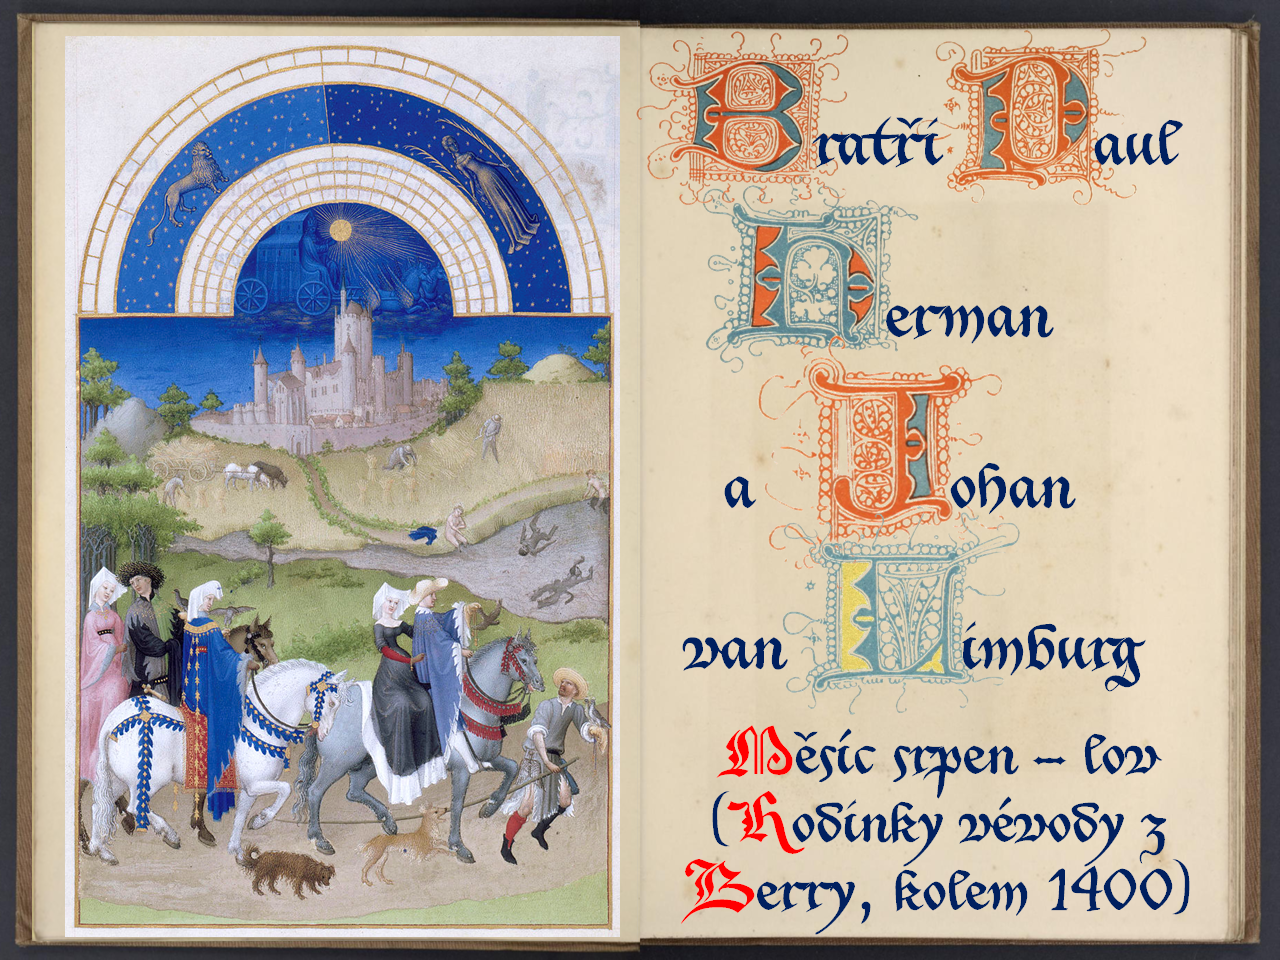 Bratři Paul
Herman
a Johan
van Limburg
Měsíc srpen – lov
(Hodinky vévody z
Berry, kolem 1400)